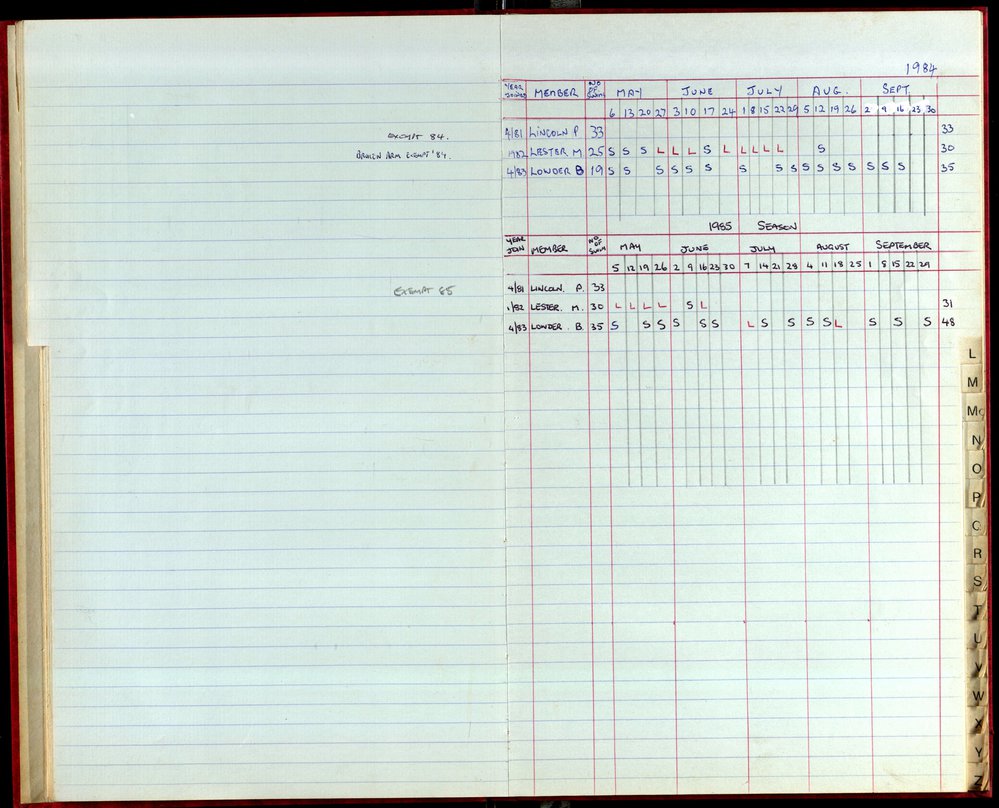 1984
YEAR JOINED MEMBER NO OF SWIMS MAY JUNE JULY AUG. SEPT.
6 13 20 27 3 10 17 24 1 8 15 22 29 5 12 19 26 2 9 16 23 30
EXEMPT 84. 4/81 LINCOLN P 33 33
BROKEN ARM EXEMPT '84. 1982 LESTER M 25 S S S L L L S L L L L L S 30
4/83 LOWDER B 19 S S S S S S S S S S S S S S S S 35
1985 SEASON
YEAR JOIN MEMBER NO OF SWIM MAY JUNE JULY AUGUST SEPTEMBER
5 12 19 26 2 9 16 23 30 7 14 21 28 4 11 18 25 1 8 15 22 29
EXEMPT 85 4/81 LINCOLN. P. 33
1/82 LESTER. M. 30 L L L L S L 31
4/83 LOWDER. B. 35 S S S S S S L S S S S L S S S 48
L
M
Mc
N
O
P
Q
R
S
T
U
V
W
X
Y
Z